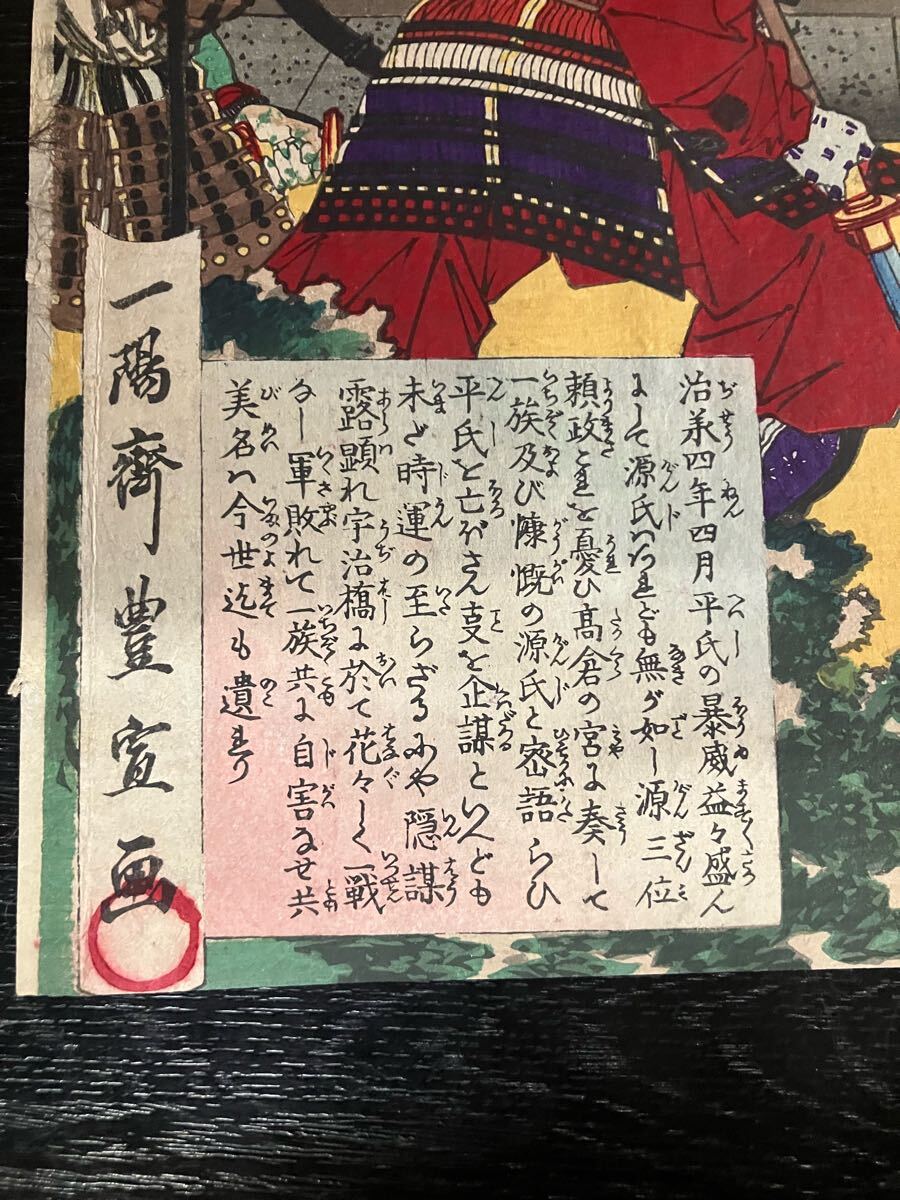 治承四年四月平氏の暴威益々盛ん
にして源氏ハ有れども無が如し源三位
頼政これを憂ひ高倉の宮に奏して
一族及び慷慨の源氏と密語らひ
平氏を亡ぼさん事を企謀といへども
未だ時運の至らざるにや隠謀
露顕れ宇治橋に於て花々しく一戦
なし軍敗れて一族共に自害なせ共
美名ハ今世迄も遺れり
一陽齊豊宣画